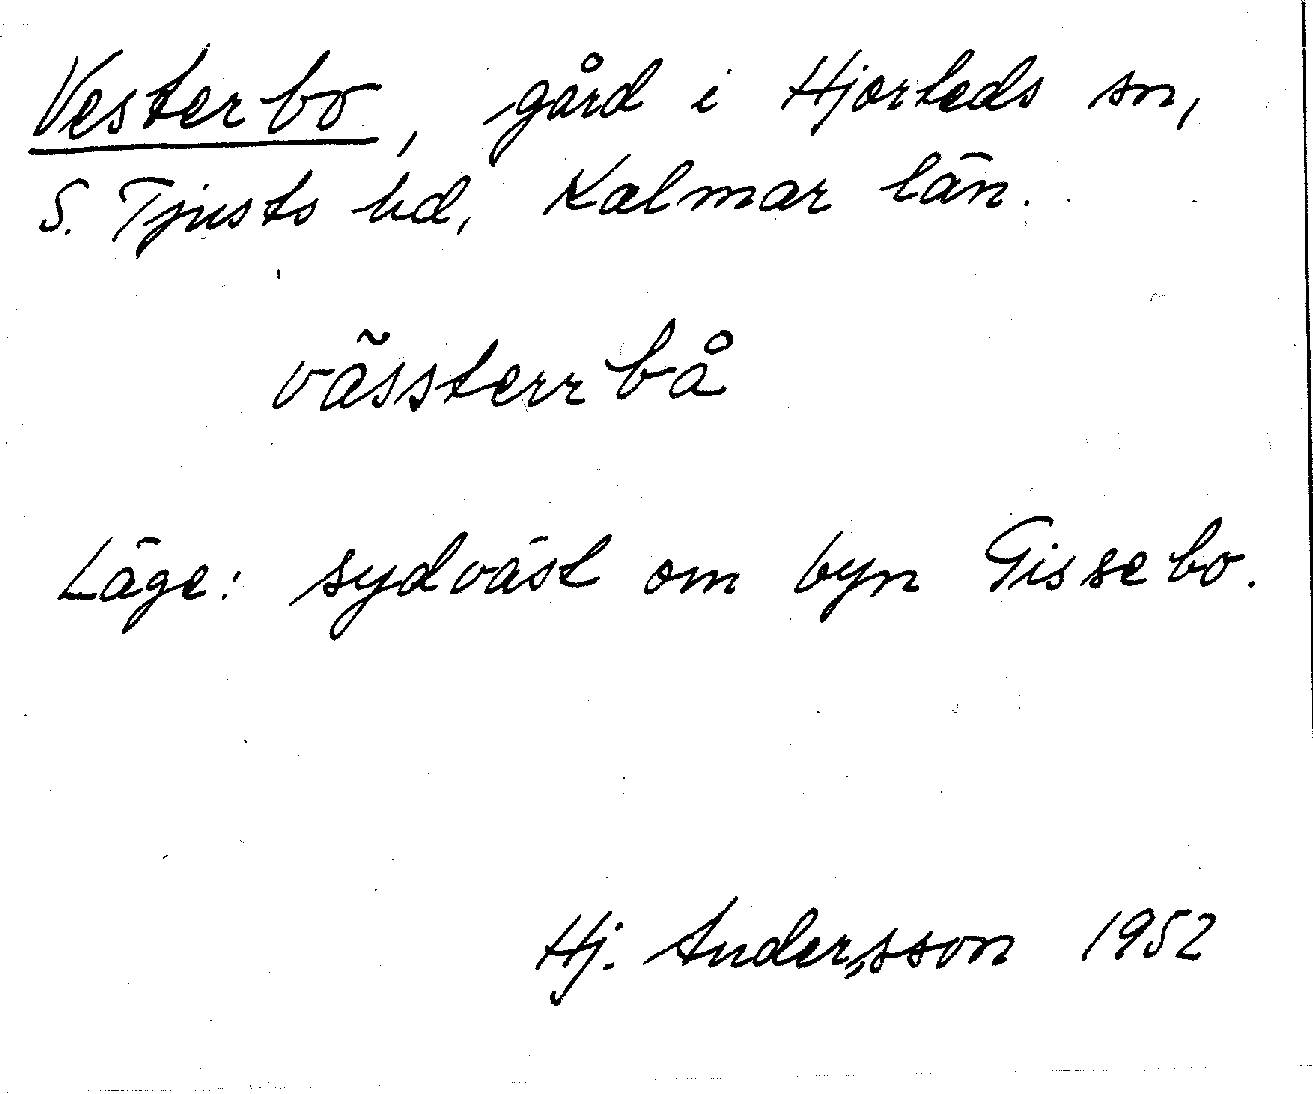 Vesterbo, gård i Hjorteds sn,
S. Tjusts hd, Kalmar län.
vãssterrbå
Läge: sydväst om byn Gissebo.
Hj. Andersson 1952